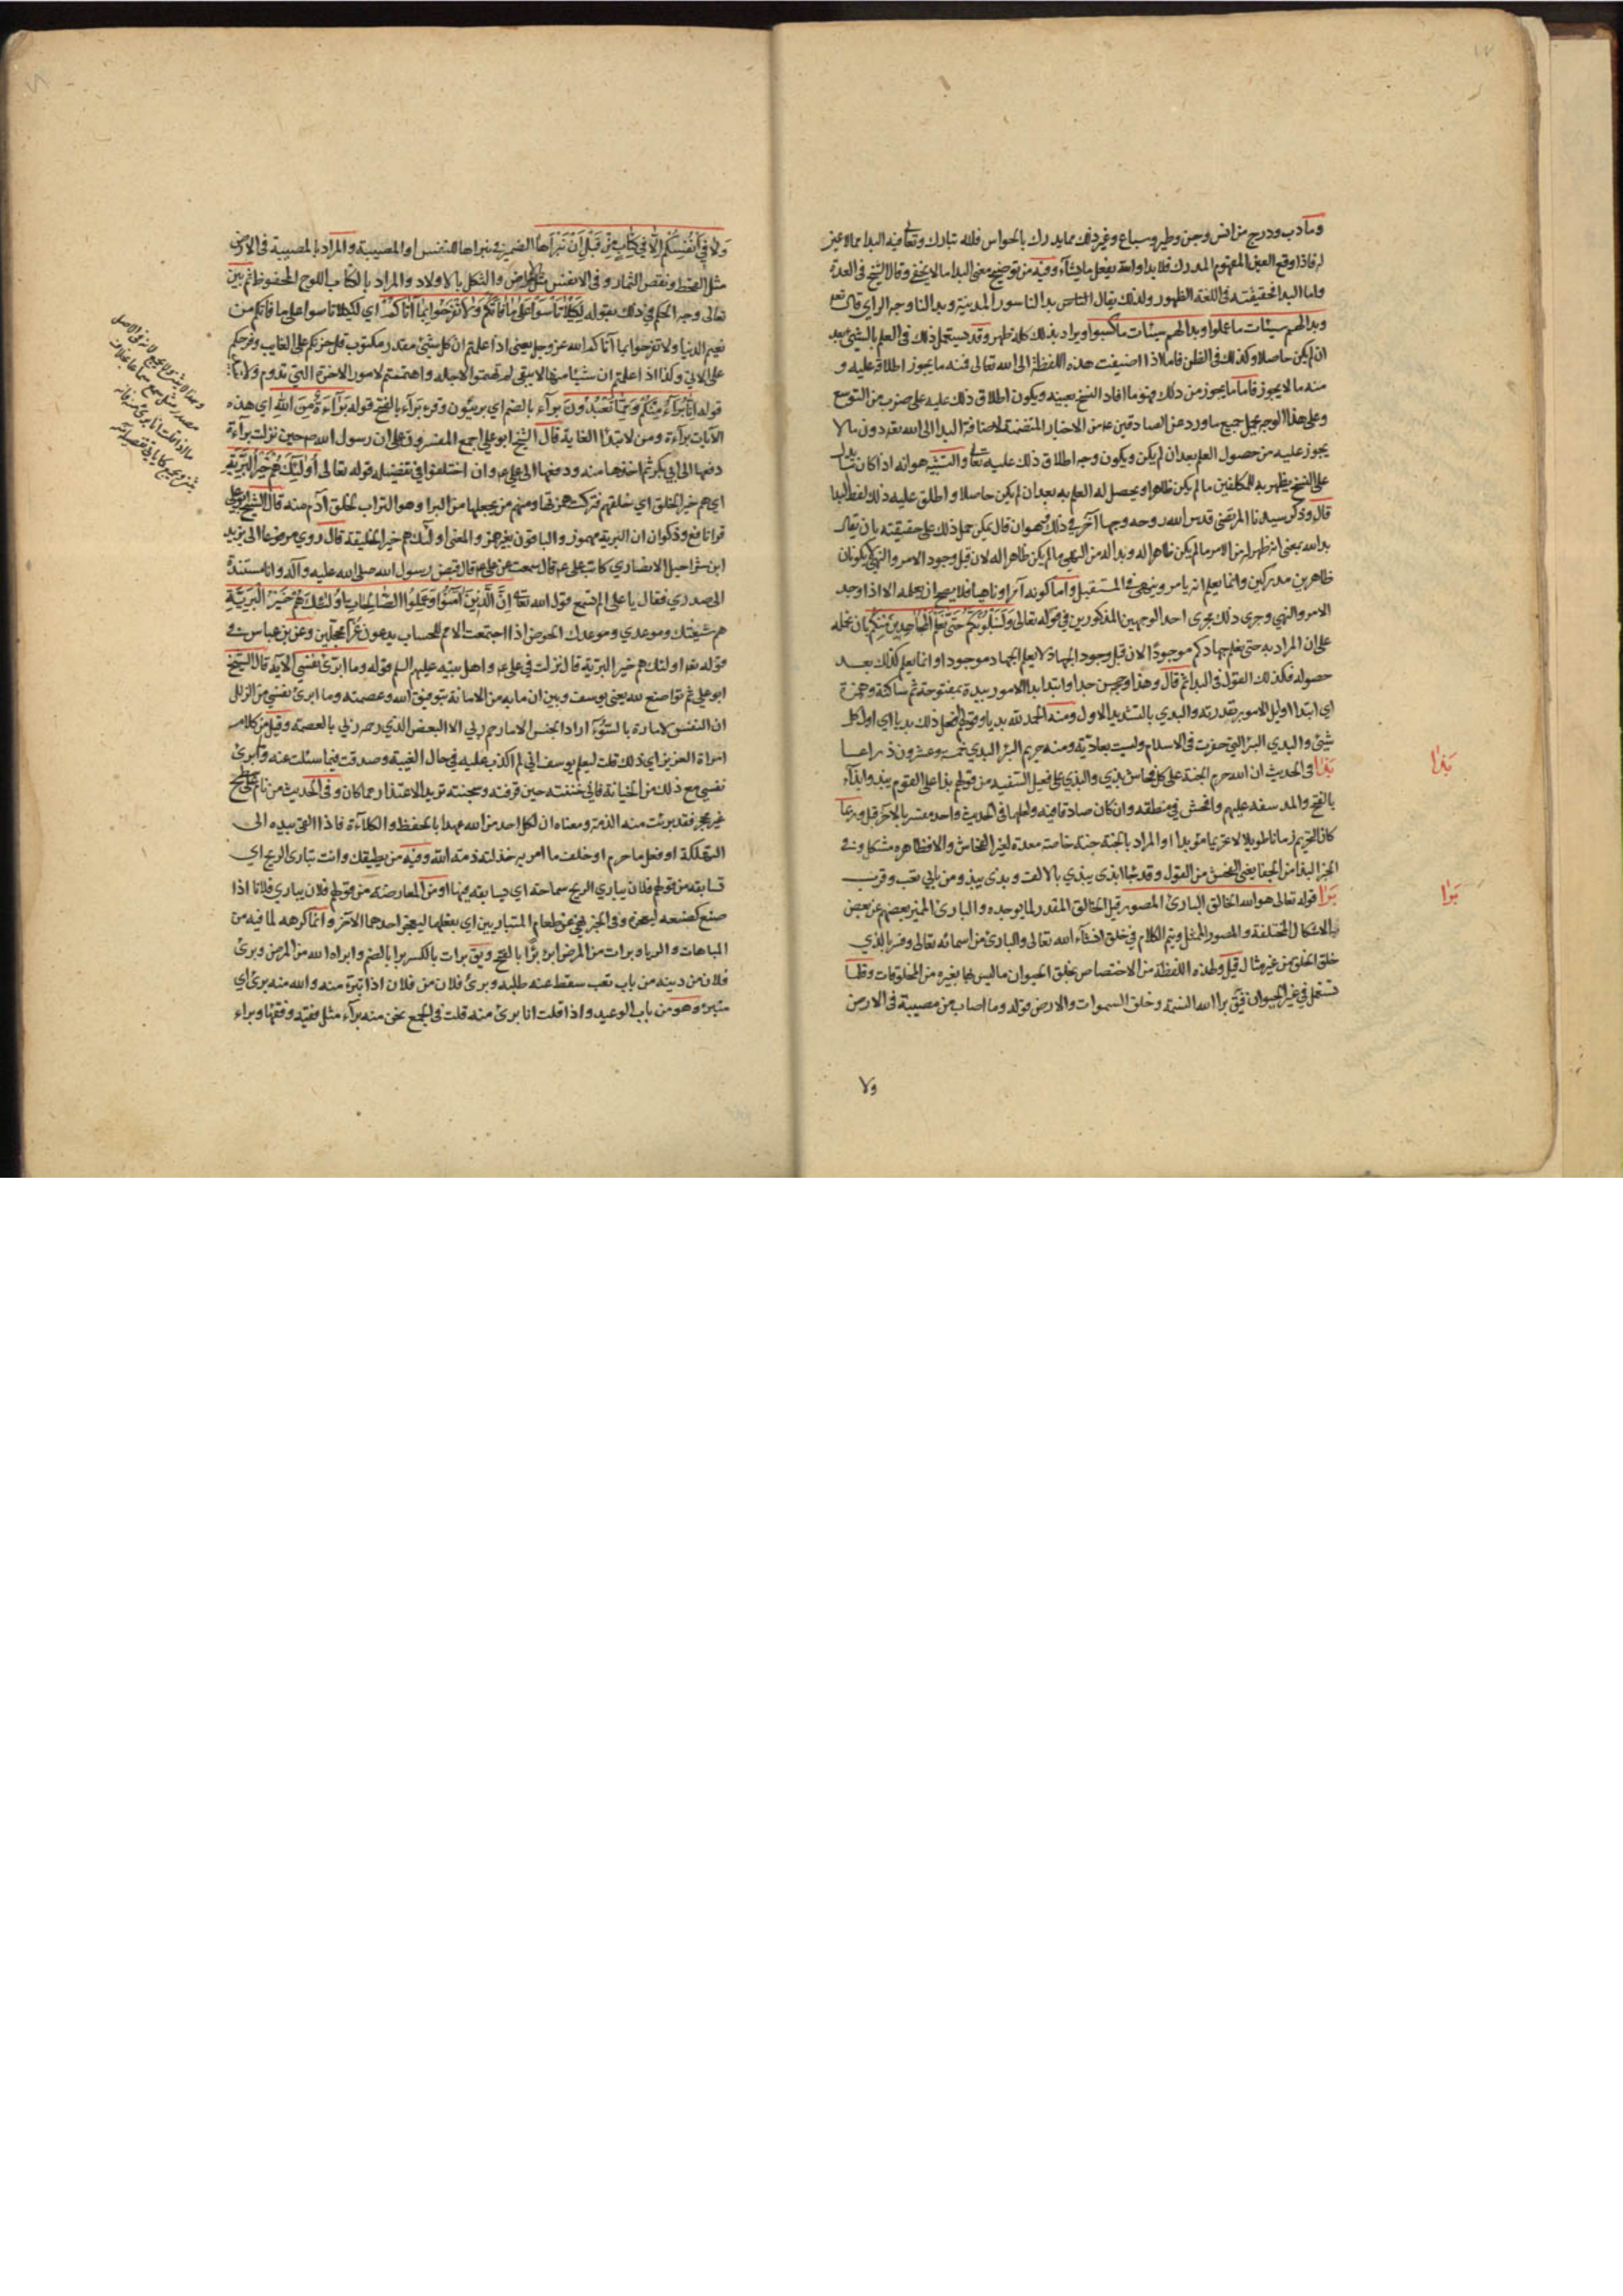 وما دب ودرج من انس وجن وطير وسباع وغير ذلك مما يدرك بالحواس فلله تبارك وتعالى فيه البدا مما لا عين
له فاذا وقع العين المفهوم المدرك فلا بدا والله يفعل ما يشآء وفيه من توضيح معنى البدا ما لا يخفى وقال الشيخ في العدة
واما البدا فحقيقته في اللغة الظهور ولذلك يقال بدا لنا سور المدينة وبدا لنا وجه الراي قال تعالى
وبدا لهم سيئات ما عملوا وبدا لهم سيئات ما كسبوا ويراد بذلك كله ظهر وقد يستعمل ذلك في العلم بالشئ بعد
ان لم يكن حاصلا وكذلك في الظن فاما اذا اضيفت هذه اللفظة الى الله تعالى فمنه ما يجوز اطلاقه عليه و
منه ما لا يجوز فاما ما يجوز من ذلك فهو ما افاد النسخ بعينه ويكون اطلاق ذلك عليه على ضرب من التوسع
وعلى هذا الوجه يحمل جميع ما ورد عن الصادقين ع من الاخبار المتضمنة لاضافة البدا الى الله تعالى دون ما لا
يجوز عليه من حصول العلم بعد ان لم يكن ويكون وجه اطلاق ذلك عليه تعالى والتشبيه هو انه اذا كان ما يدل
على النسخ يظهر به للمكلفين ما لم يكن ظاهرا ويحصل لهم العلم به بعد ان لم يكن حاصلا واطلق عليه ذلك لفظ البدا
قال وذكر سيدنا المرتضى قدس الله روحه وجها آخر في ذلك وهو ان قال يمكن حمل ذلك على حقيقته بان يقال
بدا لله بمعنى انه ظهر له من الامر ما لم يكن ظاهرا له وبدا له من النهي ما لم يكن ظاهرا له لان قبل وجود الامر والنهي لا يكونان
ظاهرين مدركين وانما يعلم انه يامر وينهى في المستقبل واما كونه آمرا وناهيا فلا يصح ان يعلمه الا اذا وجد
الامر والنهي وجرى ذلك مجرى احد الوجهين المذكورين في قوله تعالى وَلَنَبْلُوَنَّكُمْ حَتّىٰ نَعْلَمَ الْمُجاهِدِينَ مِنْكُمْ بان نحمله
على ان المراد به حتى نعلم جهادكم موجودًا لان قبل وجود الجهاد لا يعلم الجهاد موجودا وانما يعلم كذلك بعد
حصوله فكذلك القول في البدا ثم قال وهذا وجه حسن جدا وابتدا بدا الامور بيده بمفتوحة ثم ساكنة وهمزة
اي ابتدا اوايل الامور بقدرته والبدي بالتشديد الاول ومنه الحمد لله بديا وقولهم افعل ذلك بديا اي اول كل
شئ والبدي البئر التي حفرت في الاسلام وليست بعادية ومنه حريم البئر البدي خمسة وعشرون ذراعا
بَذَا في الحديث ان الله حرم الجنة على كل فحاش بذي والبذي على فعيل السفيه من قولهم بذا على القوم يبذو بذآء
بالفتح والمد سفه عليهم وافحش في منطقه وان كان صادقا فيه ولعلهما في الحديث واحد مفسر بالآخر قيل وربما
كان التحريم زمانا طويلا لا تحريما مؤبدا او المراد بالجنة جنة خاصة معدة لغير الفحاش والا فظاهره مشكل وفي
الخبر البذا من الجفا يعني الفحش من القول وقد بذا ابذى يبذي بالالف وبذى يبذو من بابي تعب وقرب
بَرَا قوله تعالى هو الله الخالق البارئ المصور قيل الخالق المقدر لما يوجده والبارئ المميز بعضهم عن بعض
بالاشكال المختلفة والمصور الممثل ويتم الكلام في خلق انشآء الله تعالى والبارئ من اسمائه تعالى وفسر بالذي
خلق الخلق من غير مثال قيل ولهذه اللفظة من الاختصاص بخلق الحيوان ما ليس لها بغيره من المخلوقات وقلما
تستعمل في غير الحيوان فيق برا الله النسمة وخلق السموات والارض قوله وما اصاب من مصيبة في الارض
ولا
بَذَا
بَرَا
وَلا فِي أَنْفُسِكُمْ إِلّا فِي كِتابٍ مِنْ قَبْلِ أَنْ نَبْرَأَها الضمير في نبراها للنفس او المصيبة والمراد بالمصيبة في الارض
مثل القحط ونقص الثمار وفي الانفس مثل الامراض والثكل بالاولاد والمراد بالكتاب اللوح المحفوظ ثم بين
تعالى وجه الحكم في ذلك بقوله لِكَيْلا تَأْسَوْا عَلىٰ ما فاتَكُمْ وَلا تَفْرَحُوا بِما آتاكُمْ اي لكيلا تاسوا على ما فاتكم من
نعيم الدنيا ولا تفرحوا بما آتاكم الله عز وجل يعني اذا علمتم ان كل شئ مقدر مكتوب قل حزنكم على الغايب وفرحكم
على الآتي وكذا اذا علمتم ان شيئا منها لا يبقى لم تهتموا لاجله واهتممتم لامور الآخرة التي تدوم ولا تبيد
قوله إِنّا بُرَآؤُا مِنْكُمْ وَمِمّا تَعْبُدُونَ برآء بالضم اي بريئون وقرئ بَرآء بالفتح قوله بَرآءَةٌ مِنَ اللهِ اي هذه
الآيات برآءة ومن لابتدا الغاية قال الشيخ ابو علي اجمع المفسرون على ان رسول الله ص حين نزلت براءة
دفعها الى ابي بكر ثم اخذها منه ودفعها الى علي ع وان اختلفوا في تفصيله قوله تعالى أُولٰئِكَ هُمْ خَيْرُ الْبَرِيَّةِ
اي هم خير الخلق اي خلقهم فتركت همزتها ومنهم من يجعلها من البرا وهو التراب لخلق آدم منه قال الشيخ ابو علي
قرا نافع وذكوان البرية مهموز والباقون بغير همز والمعنى اولئك هم خير الخليقة قال روي مرفوعا الى يزيد
ابن شراحيل الانصاري كاتب علي ع قال سمعت عن علي ع قال قبض رسول الله صلى الله عليه وآله وانا مسنده
الى صدري فقال يا علي الم تسمع قول الله تعالى إِنَّ الَّذِينَ آمَنُوا وَعَمِلُوا الصّالِحاتِ أُولٰئِكَ هُمْ خَيْرُ الْبَرِيَّةِ
هم شيعتك وموعدي وموعدك الحوض اذا اجتمعت الامم للحساب يدعون غُرًّا محجلين وعن بن عباس في
قوله تعالى اولئك هم خير البرية قال نزلت في علي ع واهل بيته عليهم السلم قوله وما ابرّئ نفسي الآية قال الشيخ
ابو علي ثم تواضع لله يعني يوسف وبين ان ما به من الامانة بتوفيق الله وعصمته وما ابرئ نفسي من الزلل
ان النفس لامارة بالسُّوء اراد الجنس الا ما رحم ربي الا البعض الذي رحمه ربي بالعصمة وقيل من كلام
امراة العزيز اي ذلك قلت ليعلم يوسف اني لم اكذب عليه في حال الغيبة وصدقت فيما سئلت عنه وما ابرئ
نفسي مع ذلك من الخيانة فاني خنته حين قرفته وسجنته تريد الاعتذار مما كان وفي الحديث من نام على سطح
غير محجر فقد برئت منه الذمة ومعناه ان لكل احد من الله عهدا بالحفظ والكلآءة فاذا القى بيده الى
التهلكة او فعل ما حرم او خالف ما امر به خذلته ذمة الله وفيه من يطيقك وانت تباري الريح اي
تسابقه من قولهم فلان يباري الريح سماحة اي يسابقه فيها او من المعارضة من قولهم فلان يباري فلانا اذا
صنع كصنعه ليعجزه وفي الخبر نهي عن طعام المتباريين اي بفعلهما ليعجز احدهما الآخر وانما كرهه لما فيه من
المباهات والريا وبرات من المرض ابرؤ برًا بالفتح ويق برات بالكسر برا بالضم وابراه الله من المرض وبرئ
فلان من دينه من باب تعب سقط عنه طلبه وبرئ فلان من فلان اذا تبرّء منه والله منه برئ اي
متبرئ وهو من باب الوعيد واذا قلت انا برئ منه قلت في الجمع نحن منه برآء مثل فقيه وفقهاء وبراء